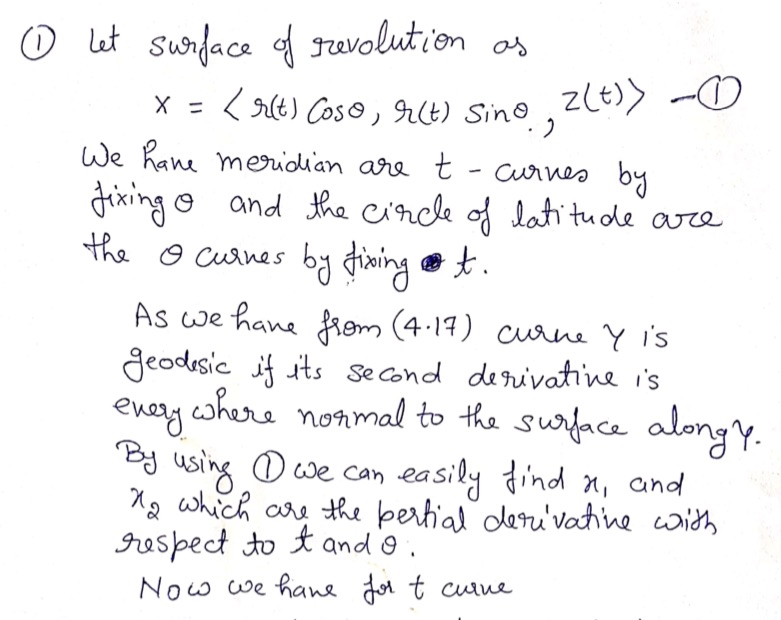 ① Let surface of revolution as
x = < r(t) Cosθ, r(t) Sinθ, z(t)> —①
We have meridian are t - curves by
fixing θ and the circle of latitude are
the θ curves by fixing t.
As we have from (4.17) curve γ is
geodesic if its second derivative is
every where normal to the surface along γ.
By using ① we can easily find x₁ and
x₂ which are the pertial derivative with
respect to t and θ.
Now we have for t curve